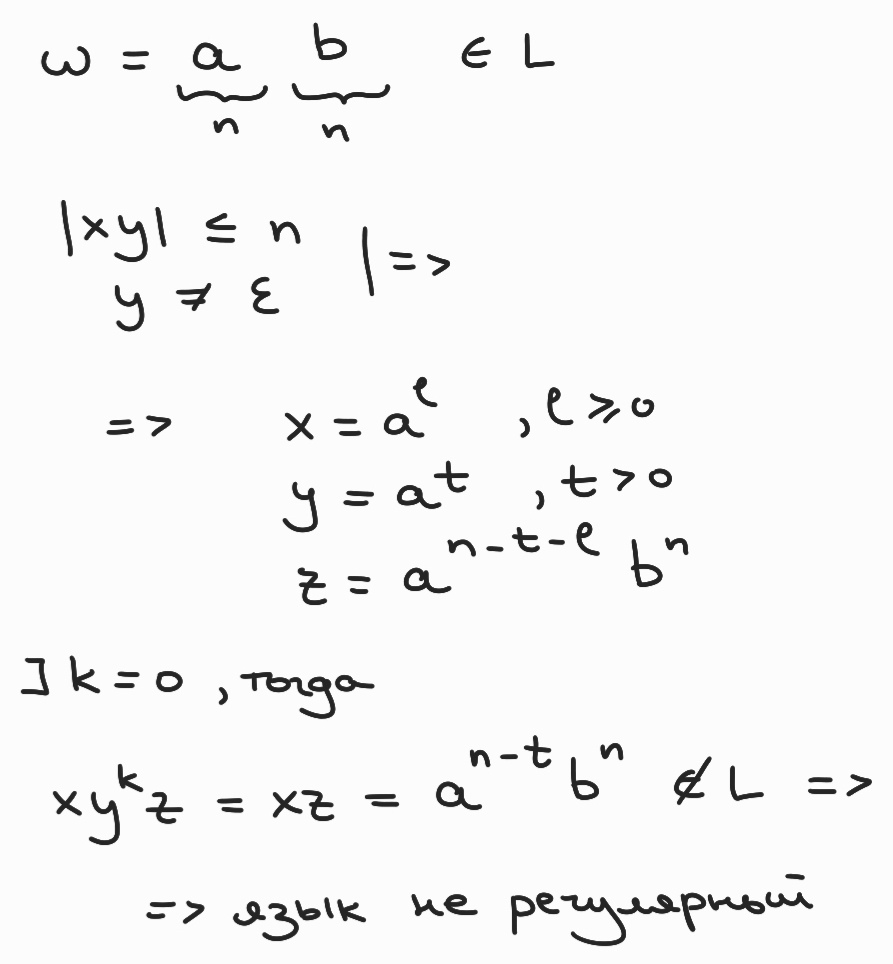 ω = a b ∈ L
n n
|xy| ≤ n
y ≠ ε | =>
=> x = a^l , l ≥ 0
y = a^t , t > 0
z = a^{n-t-l} b^n
] k = 0 , тогда
xy^k z = xz = a^{n-t} b^n ∉ L =>
=> язык не регулярный